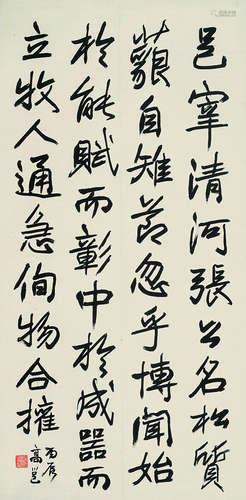 邑宰清河張公名松質
藐自雉節忽乎博聞始
於能賦而彰中於成器而
立牧人通急徇物合權
丙辰
高邕